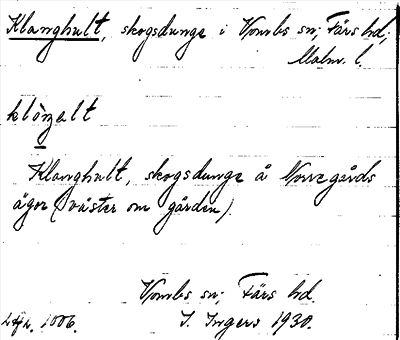 Klanghult, skogsdunge i Vombs sn; Färs hd;
Malm. l.
klòŋalt
Klanghult, skogsdunge å Norregårds
ägor (väster om gården).
Vombs sn; Färs hd.
1006. I. Ingers 1930.